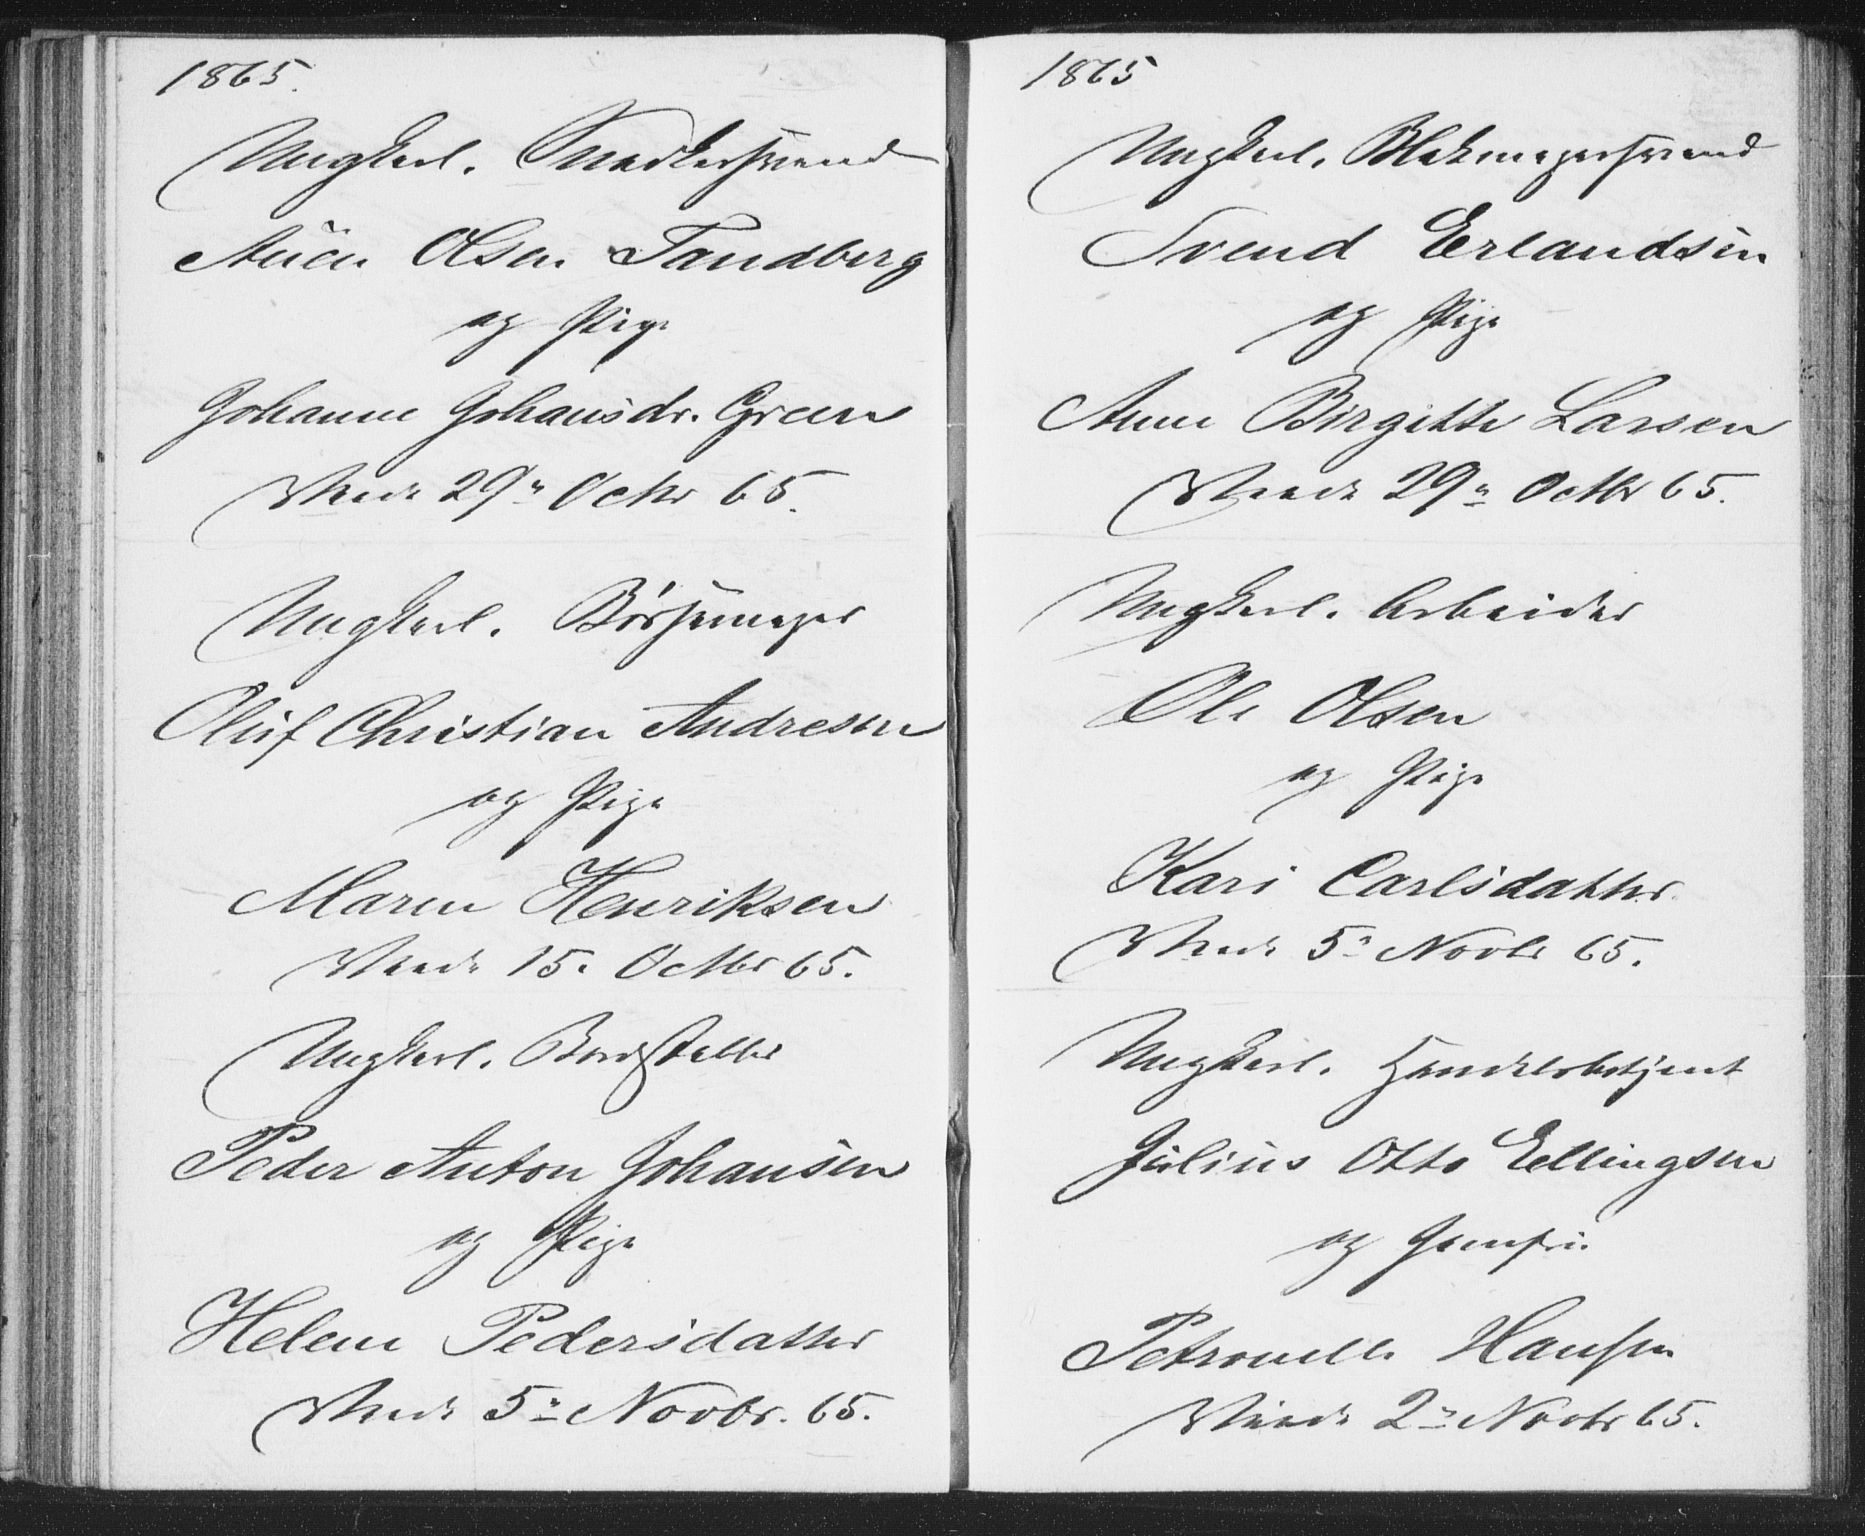 1865.
Ungkarl. Snedkersvend
Olsen Sandberg
og Pige
Johanne Johansdr. Green
Viede 29n Octbr 65.
Ungkarl. Børsemager
Oluf Christian Andresen
og Pige
Maren Henriksen
Viede 15. Octbr 65.
Ungkarl.
Peder Anton Johansen
og Pige
Helene Pedersdatter
Viede 5n Novbr. 65.
1865
Ungkarl. Blokmagersvend
Svend Erlandsen
og Pige
Anne Birgitte Larsen
Viede 29n Octbr 65.
Ungkarl. Arbeider
Ole Olsen
og Pige
Kari Carlsdatter.
Viede 5n Novbr 65.
Ungkarl. Handelsbetjent
Julius Otto Ellingsen
og Jomfru
Petronelle Hansen
Viede 2n Novbr 65.